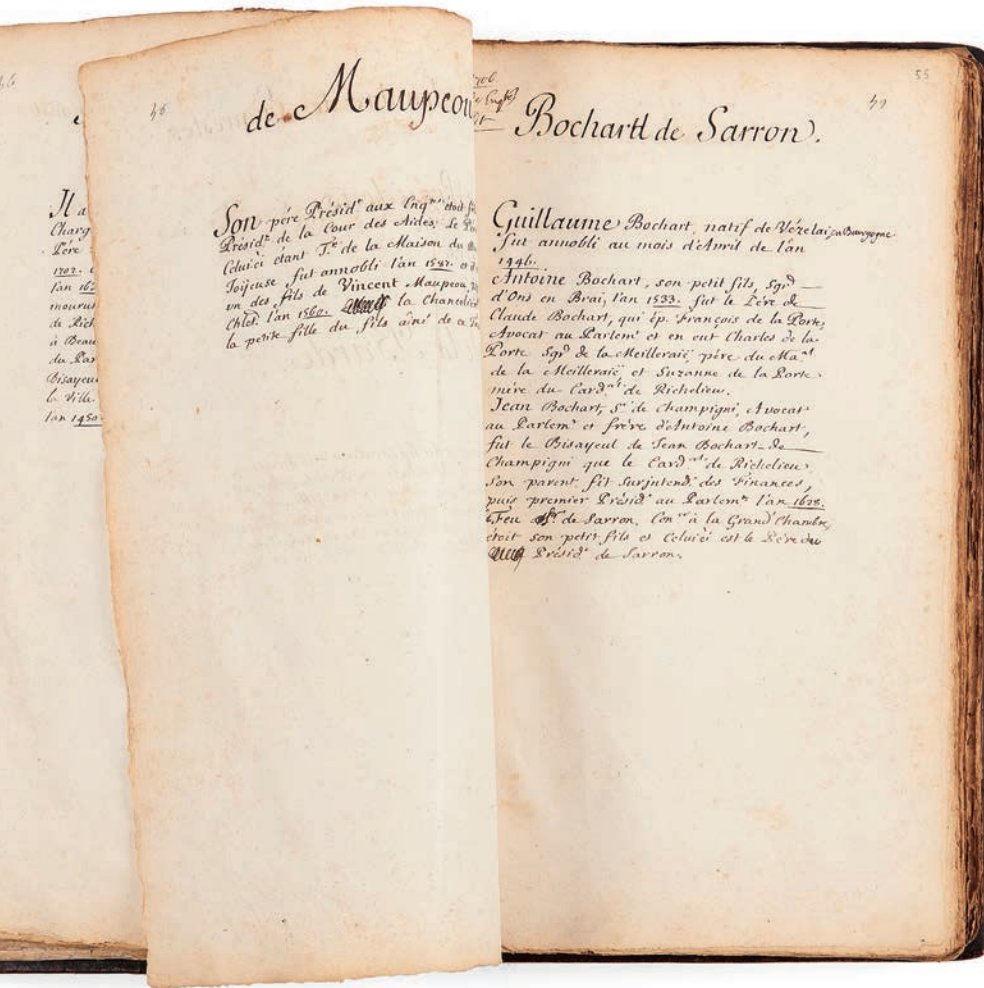 Il a
Charg
Père
1702.
l'an 162
mourut
de Rich
à Beau
du Par
Bisayeu
la Ville
l'an 1450
de Maupeou
Son père Présid.t aux Enq.tes étoit fi
Présid.t de la Cour des Aides. Le
Celuici étant T.r de la Maison du
Joijeuse fut annobli l'an 1587. et
un des fils de Vincent Maupeou,
Chlet. l'an 1560. la Chancelièr
la petite fille du fils ainé de ce
55
Bochartt de Sarron.
Guillaume Bochart, natif de Vézelai, en Bourgogne
fut annobli au mois d'Avril de l'an
1446.
Antoine Bochart, son petit fils, Sgr
d'Ons en Brai, l'an 1533. fut le Père de
Claude Bochart, qui ép. François de la Porte,
Avocat au Parlem.t et en eut Charles de la
Porte Sgr de la Meilleraië, père du Ma.al
de la Meilleraïë, et Suzanne de la Porte
mère du Card.al de Richelieu.
Jean Bochart, S.r de Champigni, Avocat
au Parlem.t et frère d'Antoine Bochart,
fut le Bisayeul de Jean Bochart de
Champigni que le Card.al de Richelieu
son parent, fit Surjntend.t des Finances,
puis premier Présid.t au Parlem.t l'an 1628.
Feu M.r de Sarron, Con.er à la Grand' Chambre,
étoit son petit fils et Celuici est le Père du
Présid.t de Sarron.